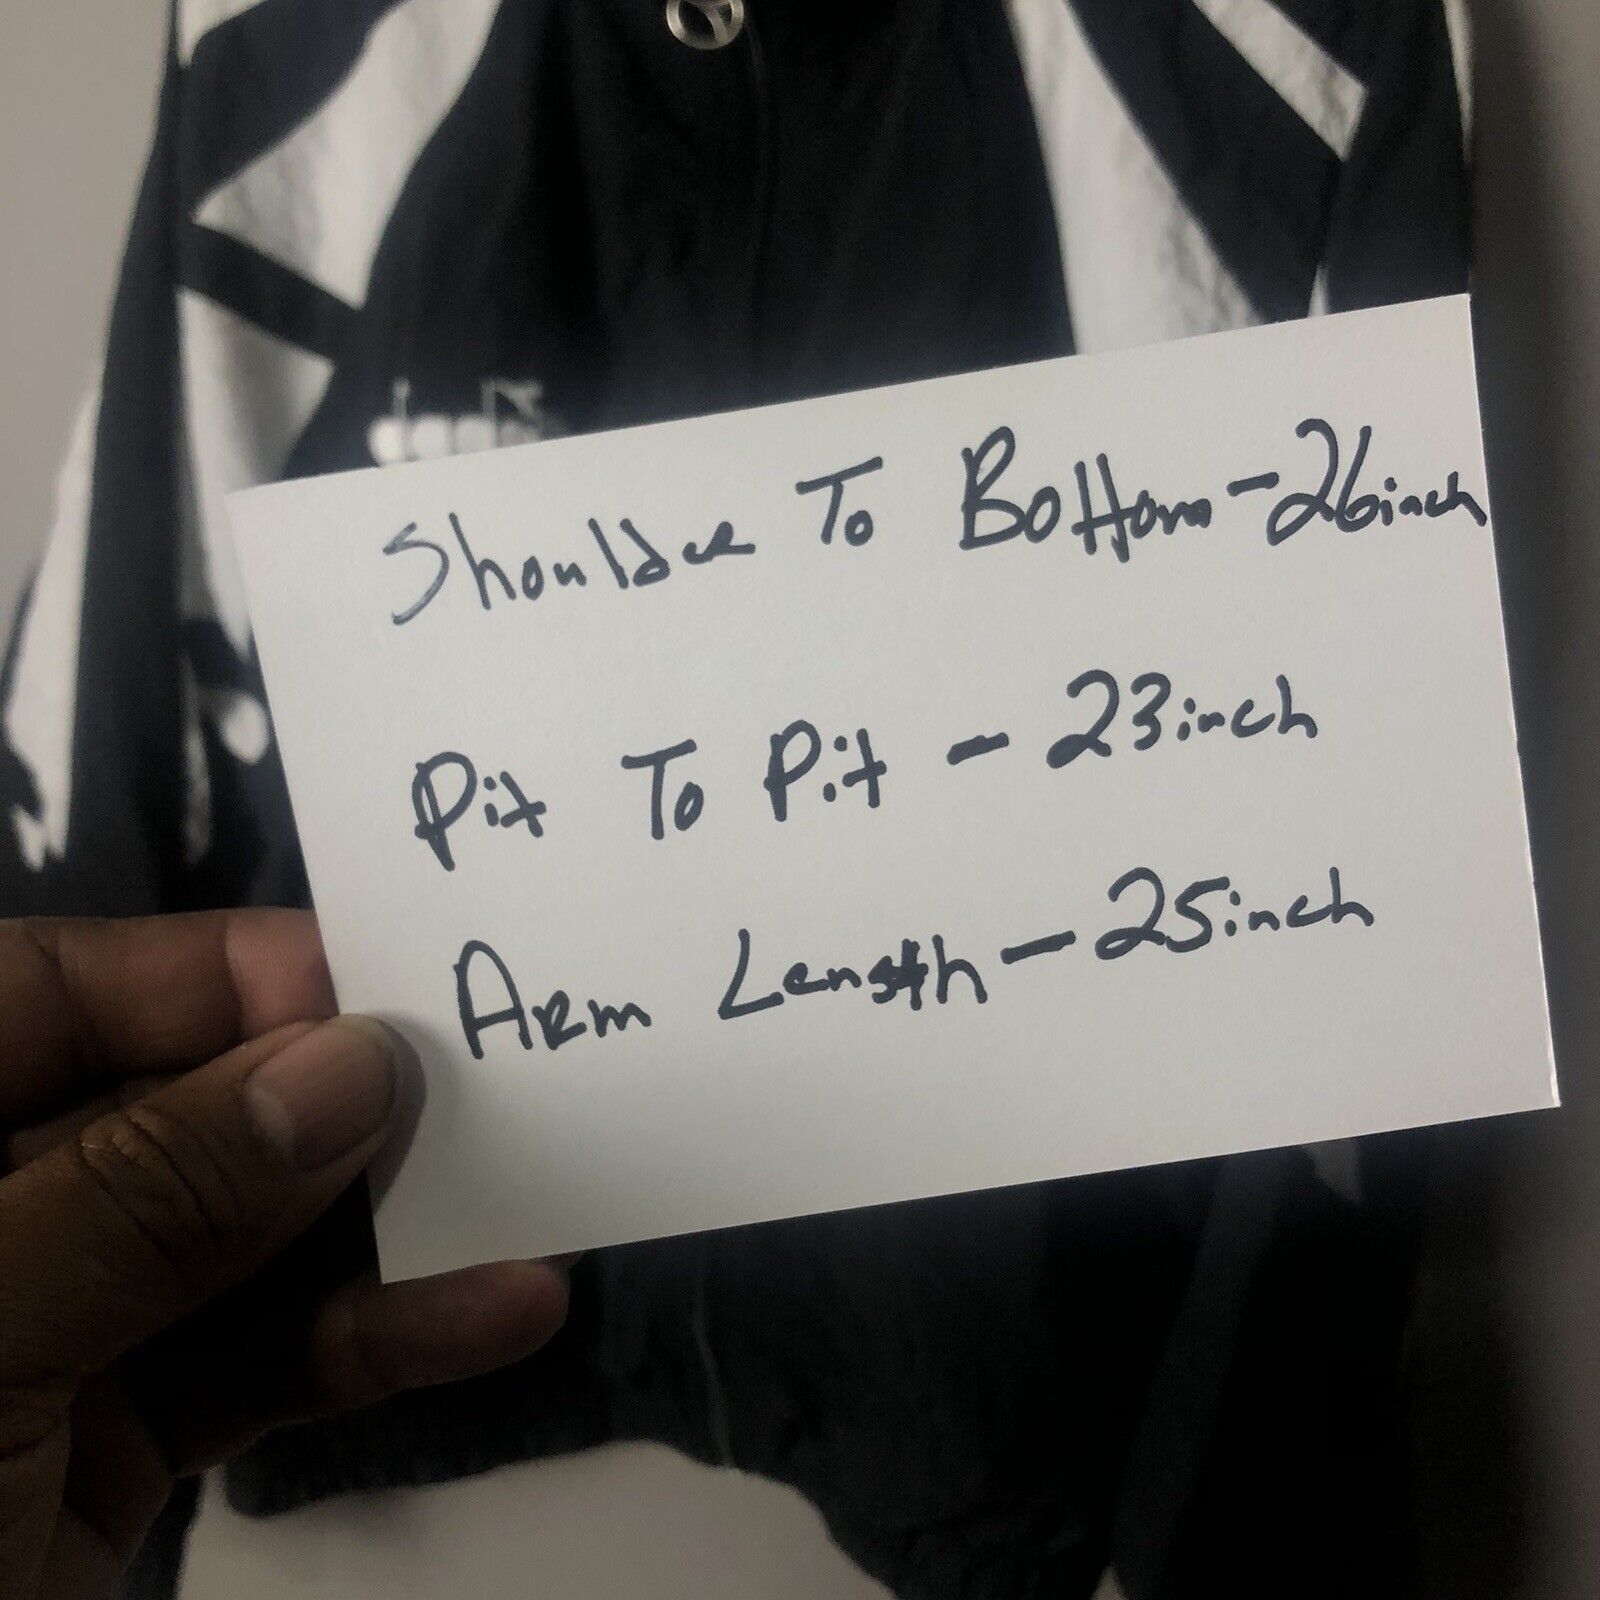 diadora
Shoulder To Bottom - 26inch
Pit To Pit - 23inch
Arm Length - 25inch